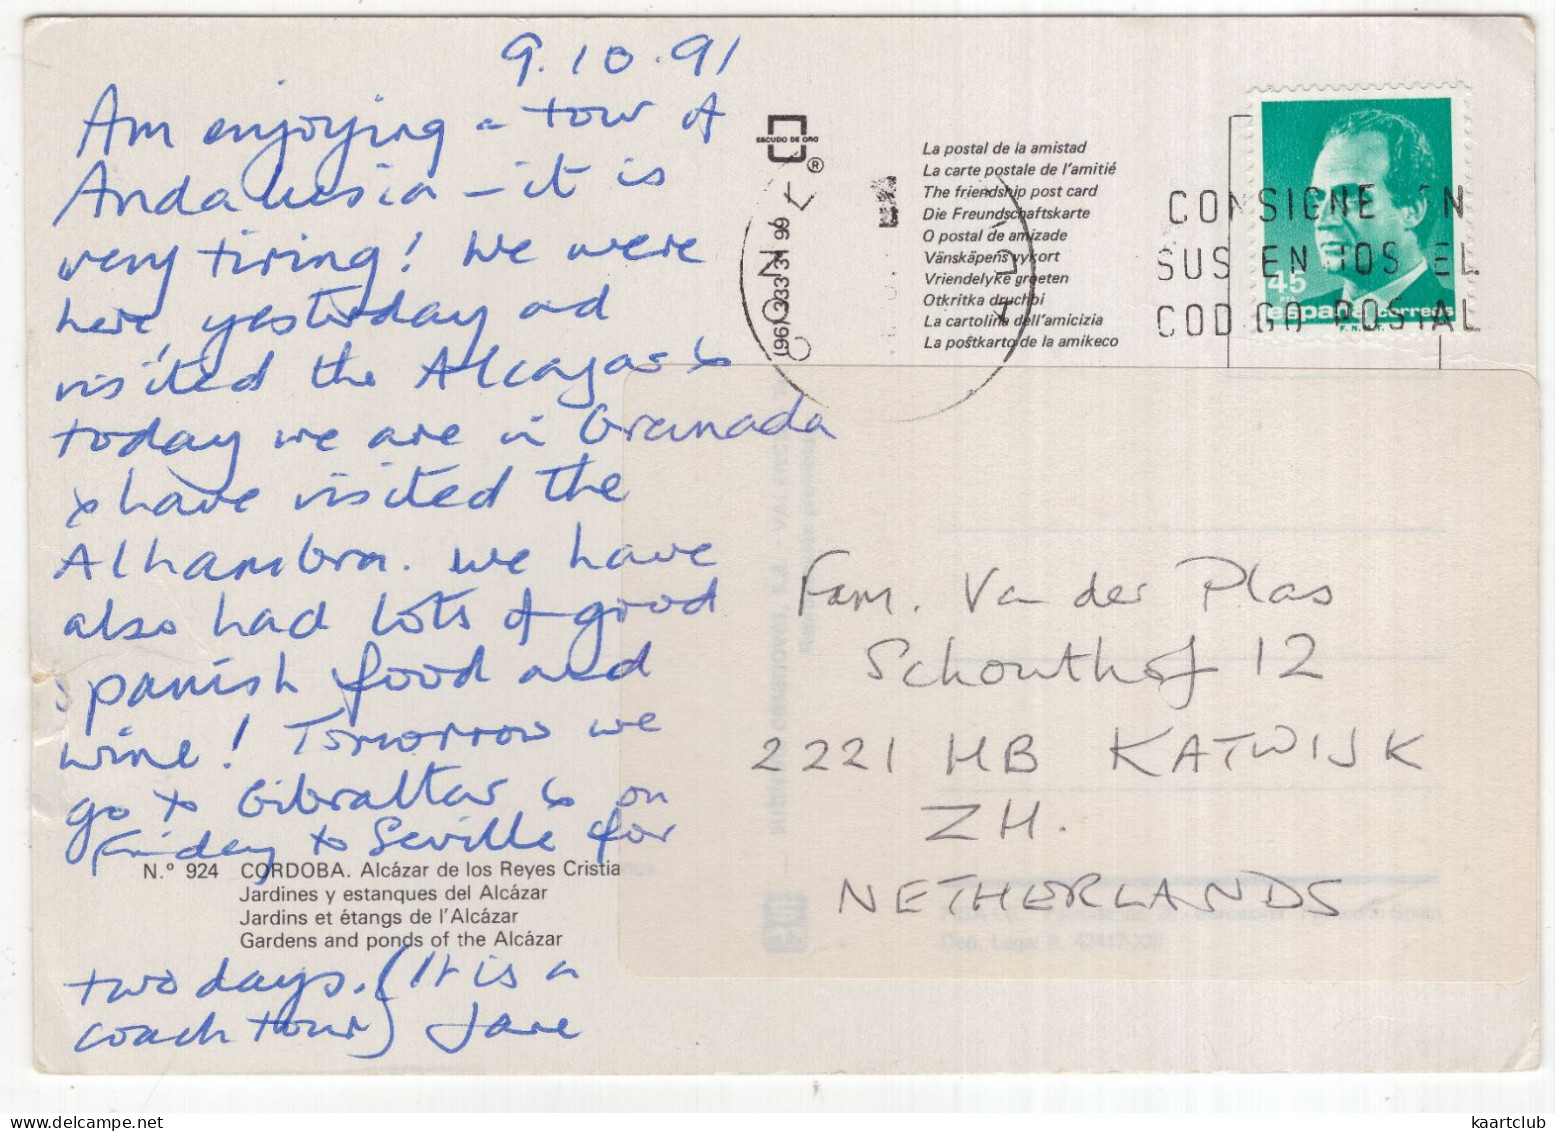 9.10.91
Am enjoying a tour of
Andalusia – it is
very tiring! We were
here yesterday and
visited the Alcazar &
today we are in Granada
& have visited the
Alhambra. We have
also had lots of good
Spanish food and
wine! Tomorrow we
go to Gibraltar & on
Friday to Seville for
N.º 924 CORDOBA. Alcázar de los Reyes Cristia
Jardines y estanques del Alcázar
Jardins et étangs de l'Alcázar
Gardens and ponds of the Alcázar
two days. (It is a
coach tour) Jane
ESCUDO DE ORO
®
(96) 333 31 99
La postal de la amistad
La carte postale de l'amitié
The friendship post card
Die Freundschaftskarte
O postal de amizade
Vänskäpens vykort
Vriendelyke groeten
Otkritka druchbi
La cartolina dell'amicizia
La poŝtkarto de la amikeco
CONSIGNE EN
SUS ENVIOS EL
CODIGO POSTAL
45
PTA
españa correos
F.N.M.T.
Fam. Van der Plas
Schouthof 12
2221 HB KATWIJK
ZH.
NETHERLANDS
kaartclub